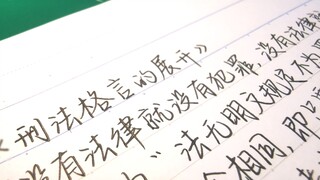 《刑法格言的展开》
没有法律就没有犯罪，没有法律就
》法无明文规定不为
相同，即